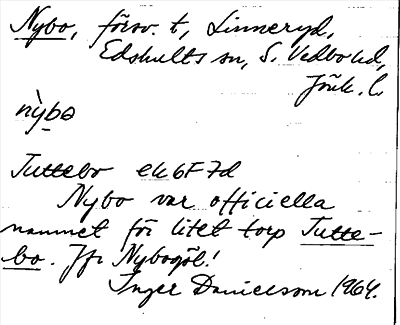 Nybo, försv. t, Linneryd,
Edshults sn, S. Vedbo hd,
Jönk. l.
nỳbo
Tuttebo ek 6F 7d
Nybo var officiella
namnet för litet torp Tutte-
bo. Jfr Nybogöl!
Inger Danielsson 1964.